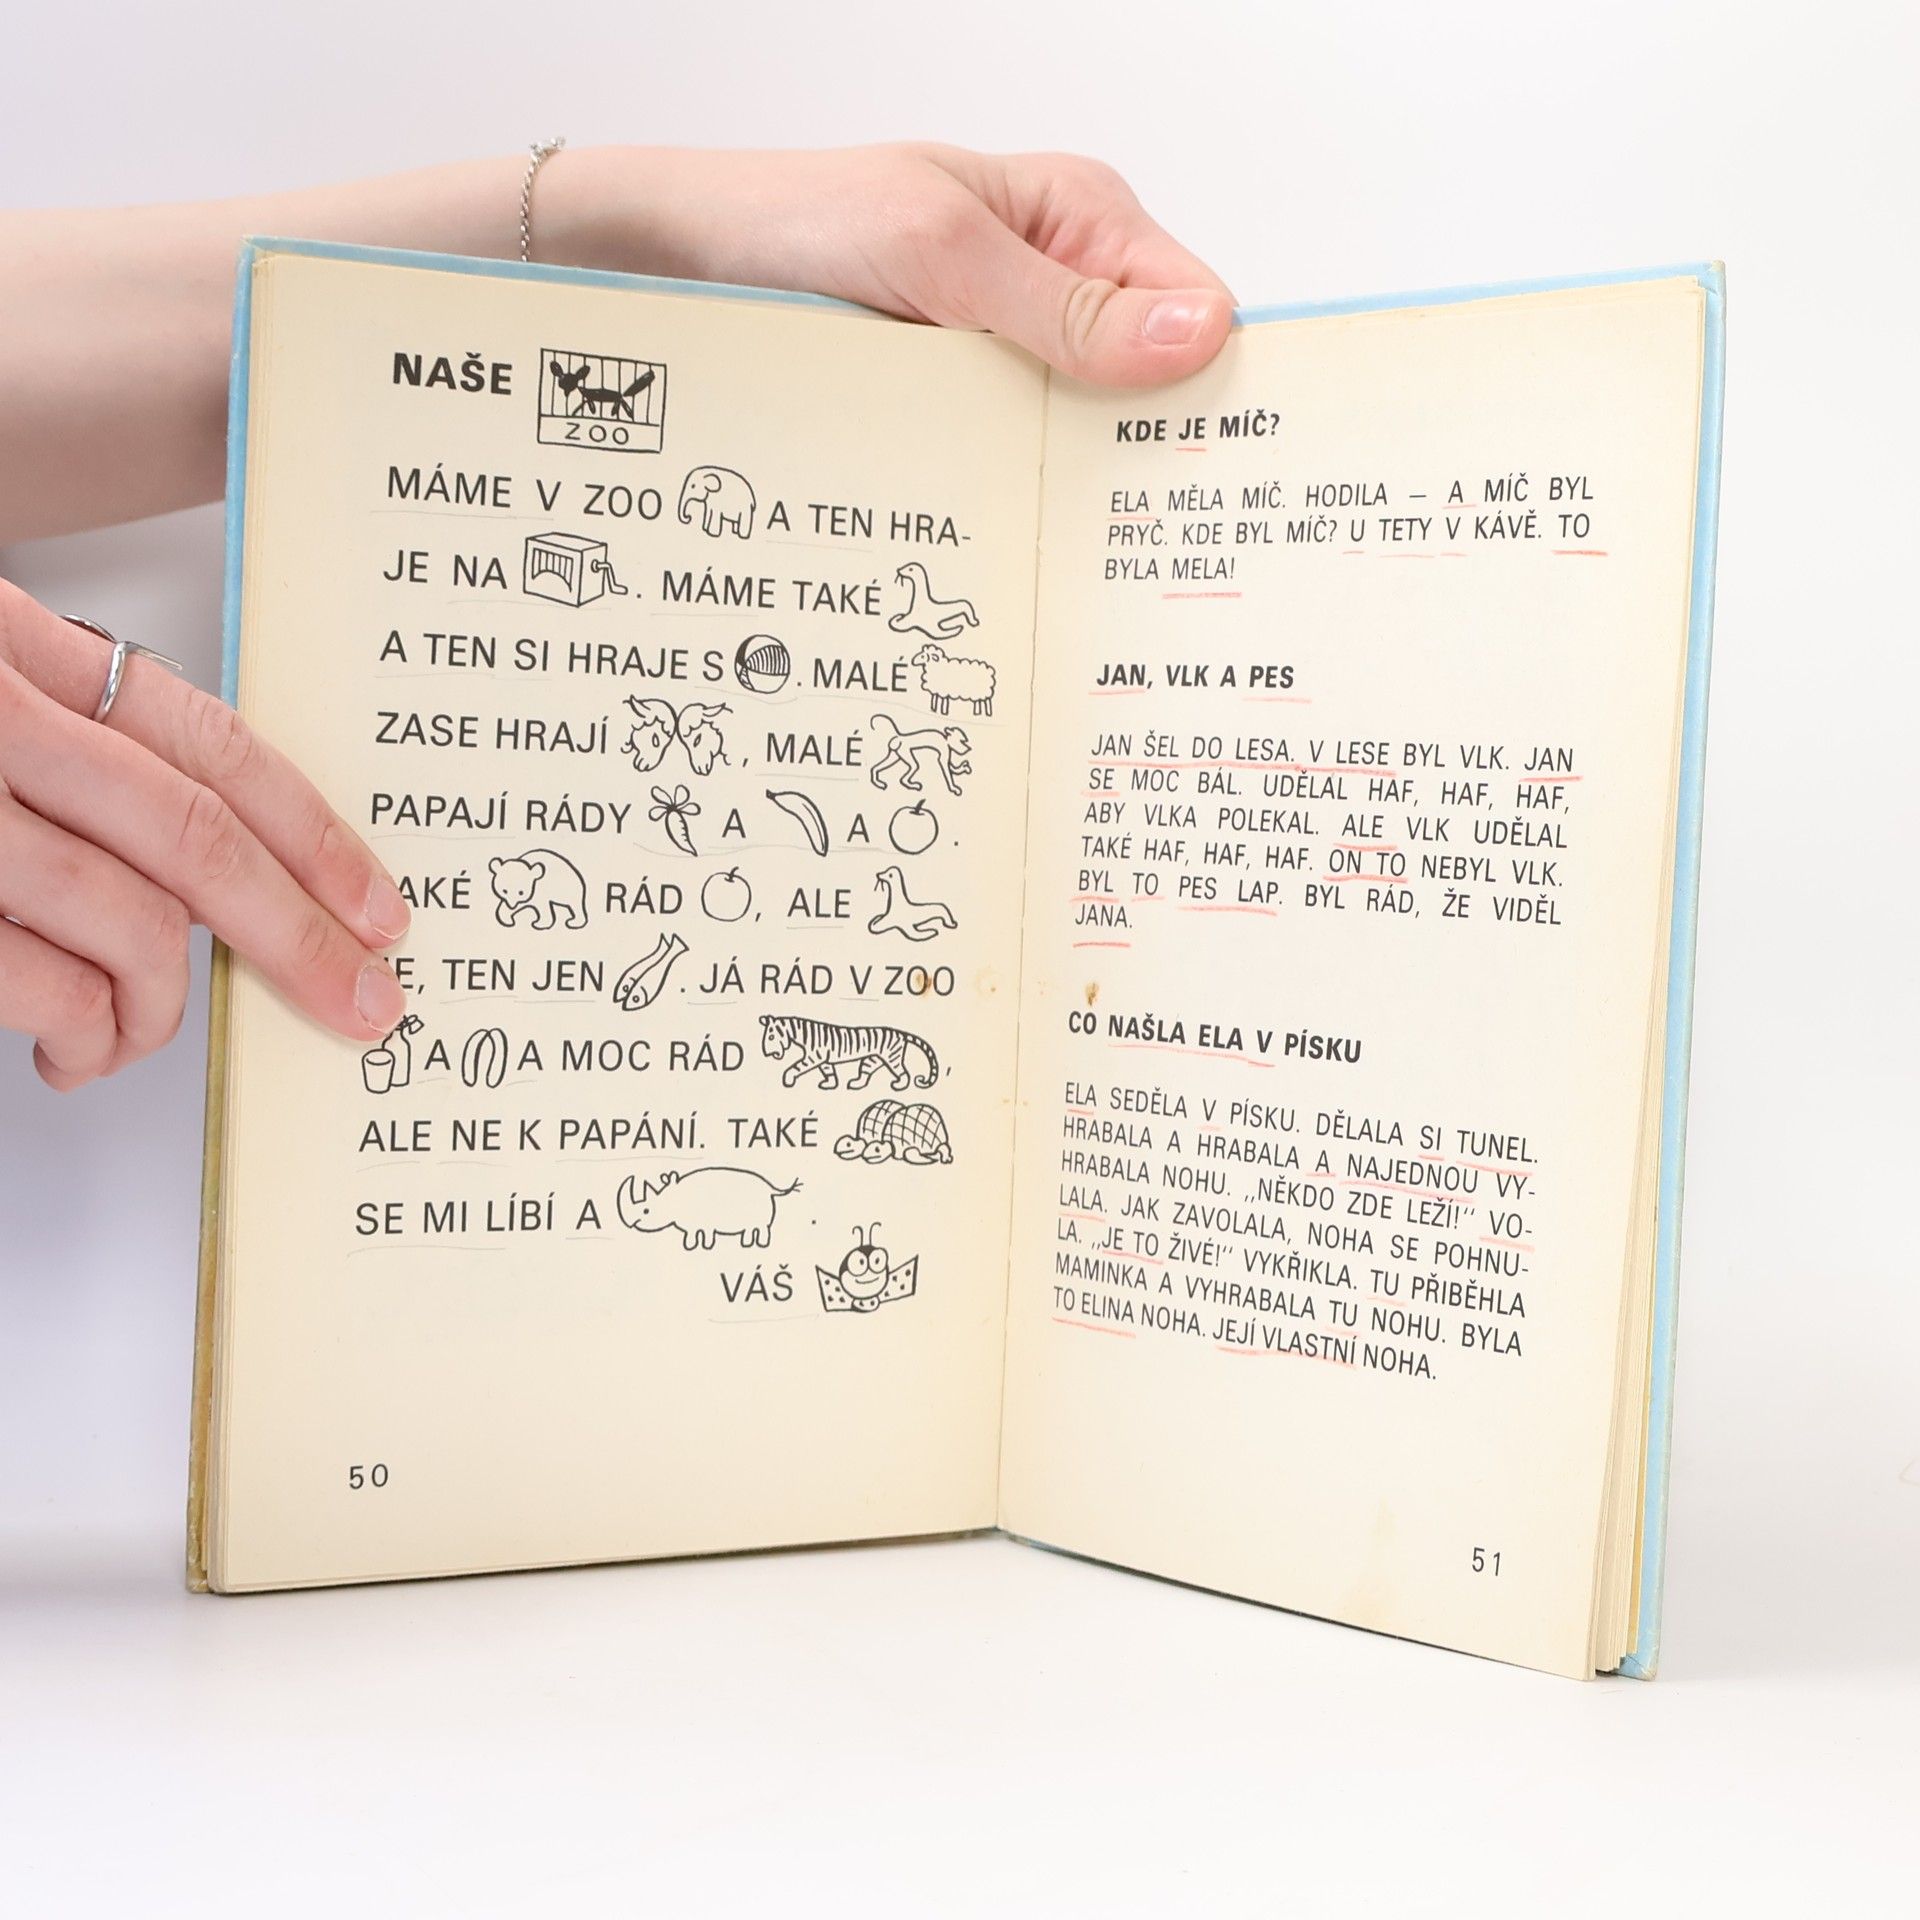 NAŠE
ZOO
MÁME V ZOO A TEN HRA-
JE NA . MÁME TAKÉ
A TEN SI HRAJE S . MALÉ
ZASE HRAJÍ , MALÉ
PAPAJÍ RÁDY A A .
AKÉ RÁD , ALE
E, TEN JEN . JÁ RÁD V ZOO
A A MOC RÁD ,
ALE NE K PAPÁNÍ. TAKÉ
SE MI LÍBÍ A .
VÁŠ
50
KDE JE MÍČ?
ELA MĚLA MÍČ. HODILA – A MÍČ BYL
PRYČ. KDE BYL MÍČ? U TETY V KÁVĚ. TO
BYLA MELA!
JAN, VLK A PES
JAN ŠEL DO LESA. V LESE BYL VLK. JAN
SE MOC BÁL. UDĚLAL HAF, HAF, HAF,
ABY VLKA POLEKAL. ALE VLK UDĚLAL
TAKÉ HAF, HAF, HAF. ON TO NEBYL VLK.
BYL TO PES LAP. BYL RÁD, ŽE VIDĚL
JANA.
CO NAŠLA ELA V PÍSKU
ELA SEDĚLA V PÍSKU. DĚLALA SI TUNEL.
HRABALA A HRABALA A NAJEDNOU VY-
HRABALA NOHU. „NĚKDO ZDE LEŽÍ!“ VO-
LALA. JAK ZAVOLALA, NOHA SE POHNU-
LA. „JE TO ŽIVÉ!“ VYKŘIKLA. TU PŘIBĚHLA
MAMINKA A VYHRABALA TU NOHU. BYLA
TO ELINA NOHA. JEJÍ VLASTNÍ NOHA.
51